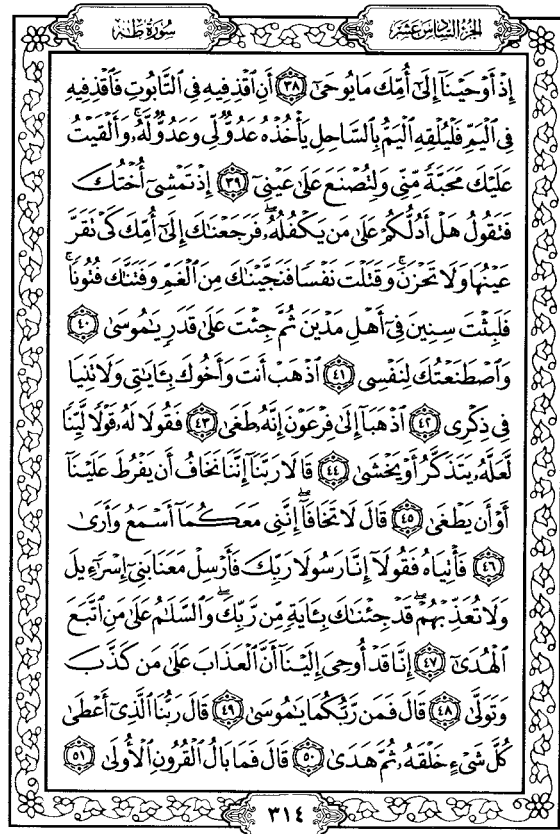 سُورَةُ طه
الجُزْءُ السَّادِسَ عَشَرَ
إِذْ أَوْحَيْنَآ إِلَىٰٓ أُمِّكَ مَا يُوحَىٰٓ ٣٨ أَنِ ٱقْذِفِيهِ فِى ٱلتَّابُوتِ فَٱقْذِفِيهِ
فِى ٱلْيَمِّ فَلْيُلْقِهِ ٱلْيَمُّ بِٱلسَّاحِلِ يَأْخُذْهُ عَدُوٌّ لِّى وَعَدُوٌّ لَّهُۥ ۚ وَأَلْقَيْتُ
عَلَيْكَ مَحَبَّةً مِّنِّى وَلِتُصْنَعَ عَلَىٰ عَيْنِىٓ ٣٩ إِذْ تَمْشِىٓ أُخْتُكَ
فَتَقُولُ هَلْ أَدُلُّكُمْ عَلَىٰ مَن يَكْفُلُهُۥ ۖ فَرَجَعْنَٰكَ إِلَىٰٓ أُمِّكَ كَىْ تَقَرَّ
عَيْنُهَا وَلَا تَحْزَنَ ۚ وَقَتَلْتَ نَفْسًا فَنَجَّيْنَٰكَ مِنَ ٱلْغَمِّ وَفَتَنَّٰكَ فُتُونًا ۚ
فَلَبِثْتَ سِنِينَ فِىٓ أَهْلِ مَدْيَنَ ثُمَّ جِئْتَ عَلَىٰ قَدَرٍ يَٰمُوسَىٰ ٤٠
وَٱصْطَنَعْتُكَ لِنَفْسِى ٤١ ٱذْهَبْ أَنتَ وَأَخُوكَ بِـَٔايَٰتِى وَلَا تَنِيَا
فِى ذِكْرِى ٤٢ ٱذْهَبَآ إِلَىٰ فِرْعَوْنَ إِنَّهُۥ طَغَىٰ ٤٣ فَقُولَا لَهُۥ قَوْلًا لَّيِّنًا
لَّعَلَّهُۥ يَتَذَكَّرُ أَوْ يَخْشَىٰ ٤٤ قَالَا رَبَّنَآ إِنَّنَا نَخَافُ أَن يَفْرُطَ عَلَيْنَآ
أَوْ أَن يَطْغَىٰ ٤٥ قَالَ لَا تَخَافَآ ۖ إِنَّنِى مَعَكُمَآ أَسْمَعُ وَأَرَىٰ
٤٦ فَأْتِيَاهُ فَقُولَآ إِنَّا رَسُولَا رَبِّكَ فَأَرْسِلْ مَعَنَا بَنِىٓ إِسْرَٰٓءِيلَ
وَلَا تُعَذِّبْهُمْ ۖ قَدْ جِئْنَٰكَ بِـَٔايَةٍ مِّن رَّبِّكَ ۖ وَٱلسَّلَٰمُ عَلَىٰ مَنِ ٱتَّبَعَ
ٱلْهُدَىٰٓ ٤٧ إِنَّا قَدْ أُوحِىَ إِلَيْنَآ أَنَّ ٱلْعَذَابَ عَلَىٰ مَن كَذَّبَ
وَتَوَلَّىٰ ٤٨ قَالَ فَمَن رَّبُّكُمَا يَٰمُوسَىٰ ٤٩ قَالَ رَبُّنَا ٱلَّذِىٓ أَعْطَىٰ
كُلَّ شَىْءٍ خَلْقَهُۥ ثُمَّ هَدَىٰ ٥٠ قَالَ فَمَا بَالُ ٱلْقُرُونِ ٱلْأُولَىٰ ٥١
٣١٤